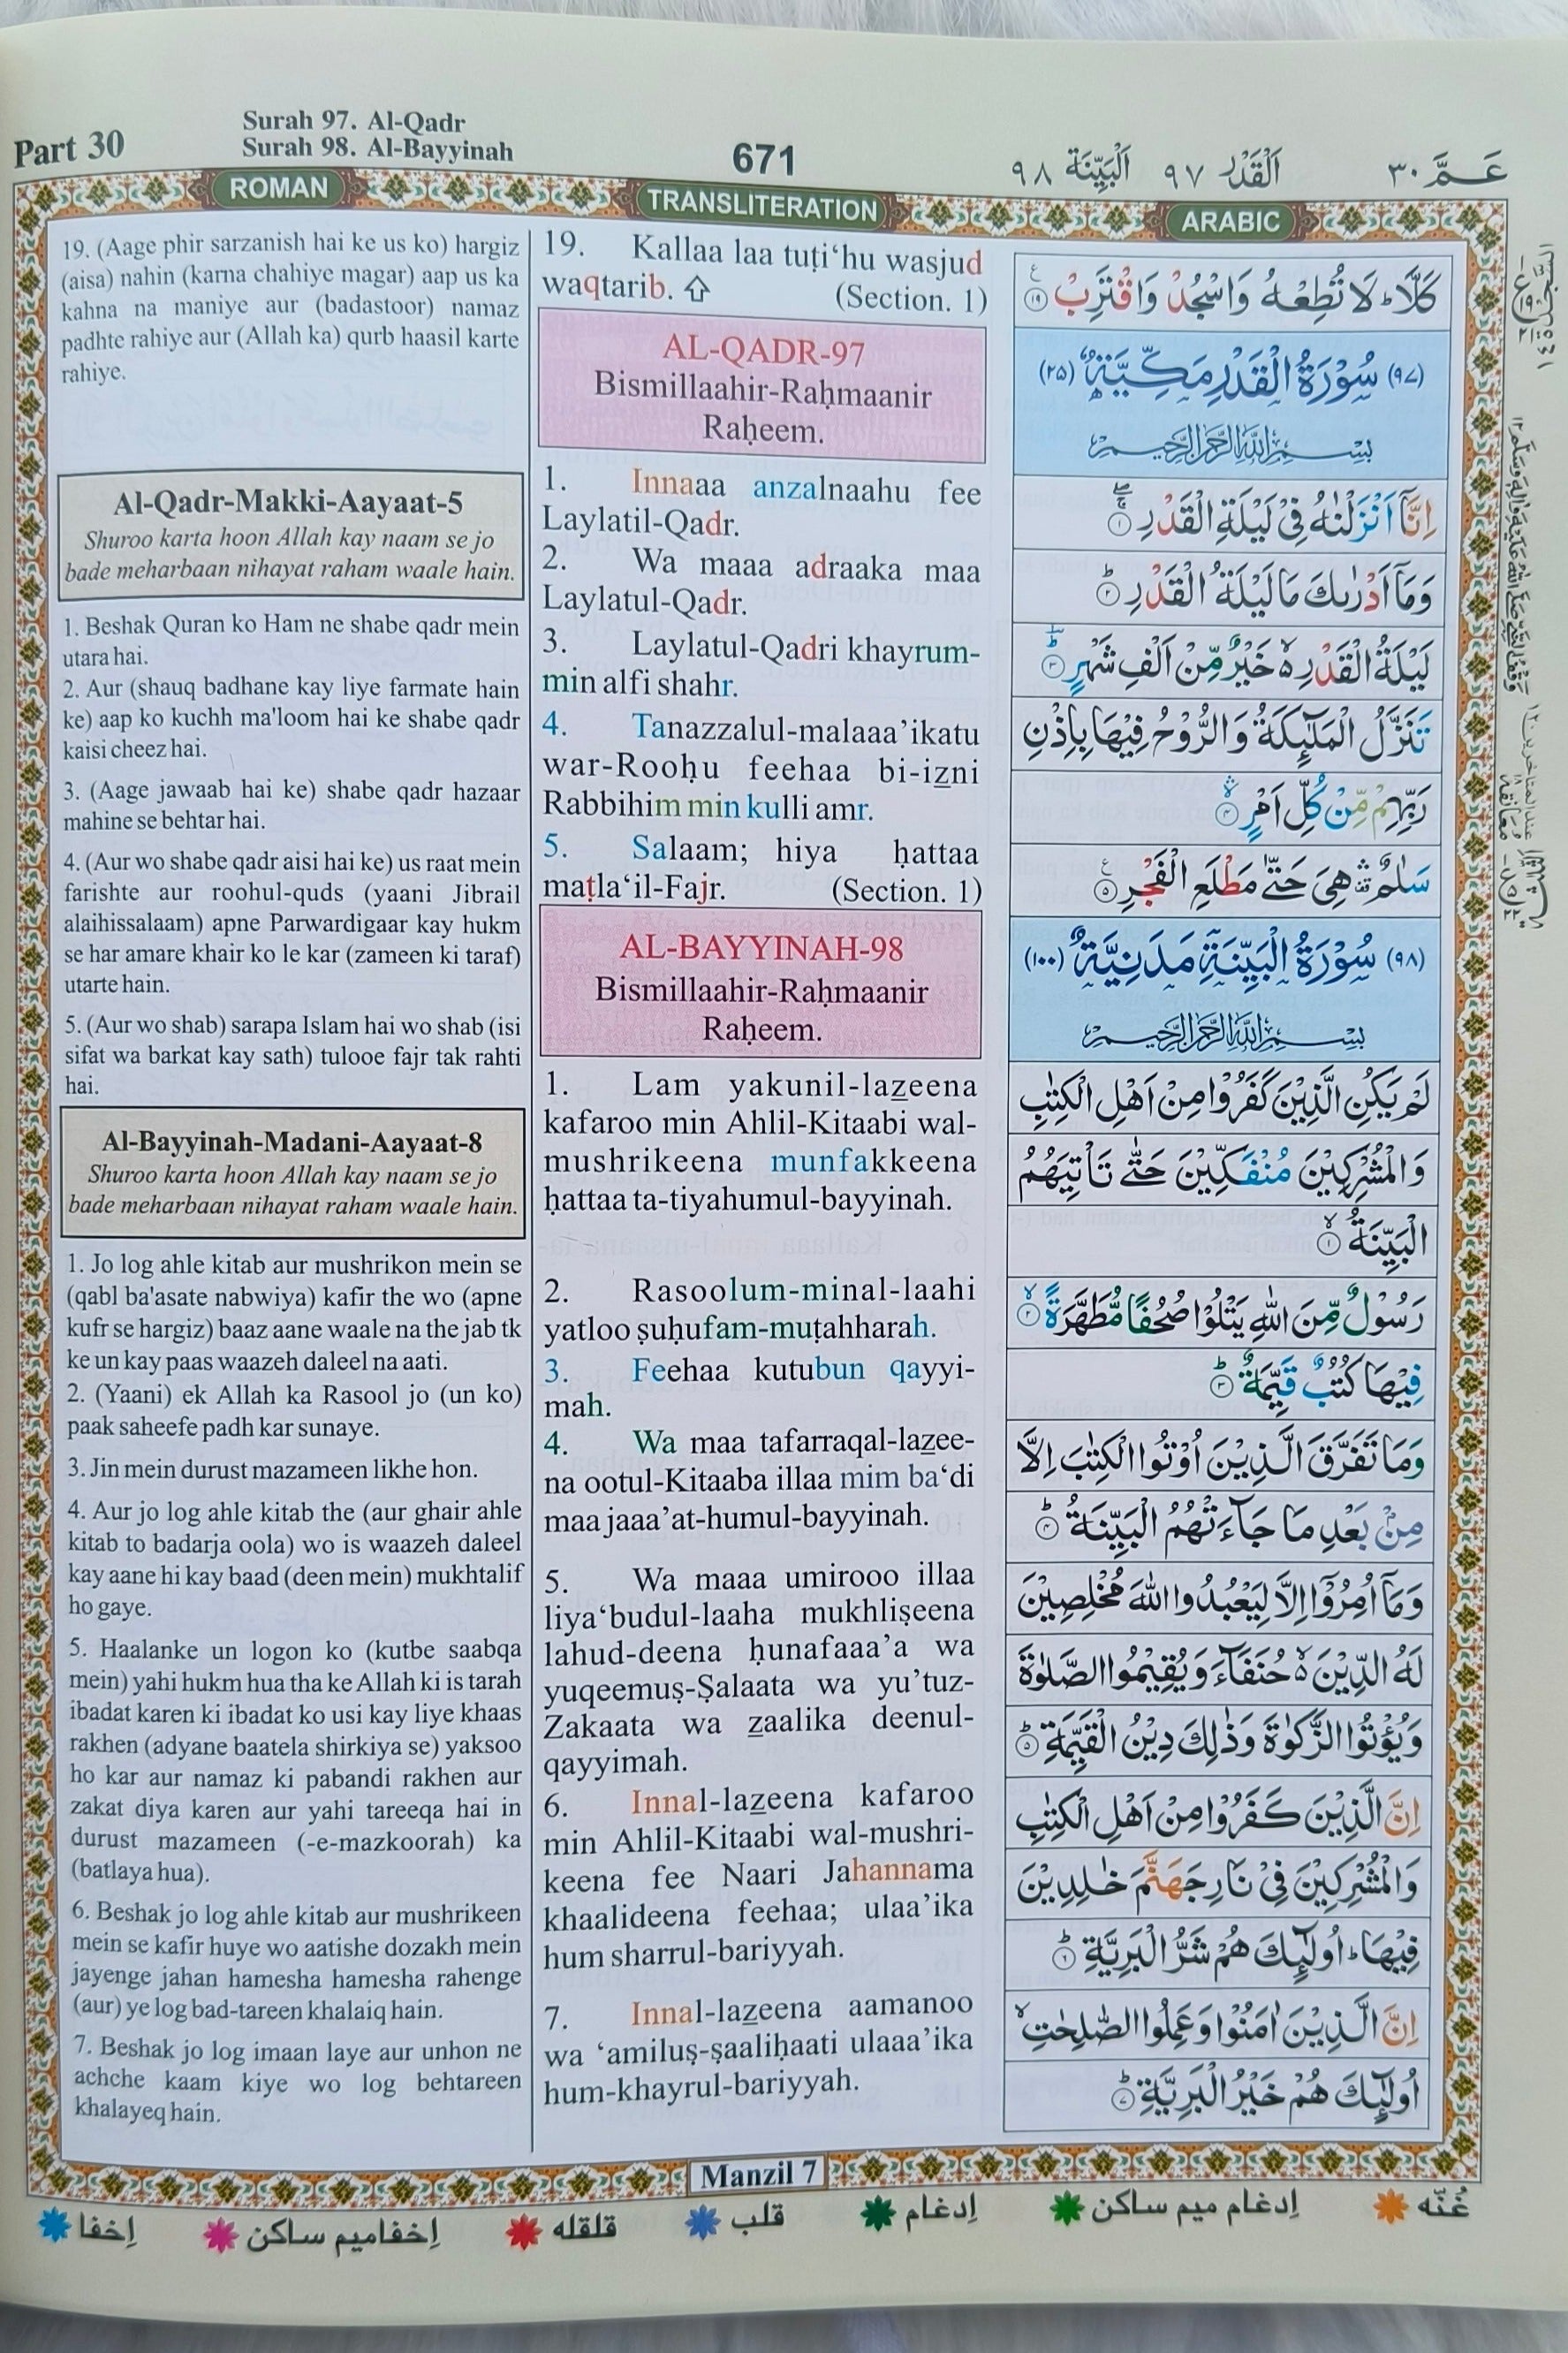 Part 30
Surah 97. Al-Qadr
Surah 98. Al-Bayyinah
671
اَلْقَدْر ٩٧ اَلْبَيِّنَة ٩٨
عَمَّ ٣٠
ROMAN
19. (Aage phir sarzanish hai ke us ko) hargiz
(aisa) nahin (karna chahiye magar) aap us ka
kahna na maniye aur (badastoor) namaz
padhte rahiye aur (Allah ka) qurb haasil karte
rahiye.
Al-Qadr-Makki-Aayaat-5
Shuroo karta hoon Allah kay naam se jo
bade meharbaan nihayat raham waale hain.
1. Beshak Quran ko Ham ne shabe qadr mein
utara hai.
2. Aur (shauq badhane kay liye farmate hain
ke) aap ko kuchh ma'loom hai ke shabe qadr
kaisi cheez hai.
3. (Aage jawaab hai ke) shabe qadr hazaar
mahine se behtar hai.
4. (Aur wo shabe qadr aisi hai ke) us raat mein
farishte aur roohul-quds (yaani Jibrail
alaihissalaam) apne Parwardigaar kay hukm
se har amare khair ko le kar (zameen ki taraf)
utarte hain.
5. (Aur wo shab) sarapa Islam hai wo shab (isi
sifat wa barkat kay sath) tulooe fajr tak rahti
hai.
Al-Bayyinah-Madani-Aayaat-8
Shuroo karta hoon Allah kay naam se jo
bade meharbaan nihayat raham waale hain.
1. Jo log ahle kitab aur mushrikon mein se
(qabl ba'asate nabwiya) kafir the wo (apne
kufr se hargiz) baaz aane waale na the jab tk
ke un kay paas waazeh daleel na aati.
2. (Yaani) ek Allah ka Rasool jo (un ko)
paak saheefe padh kar sunaye.
3. Jin mein durust mazameen likhe hon.
4. Aur jo log ahle kitab the (aur ghair ahle
kitab to badarja oola) wo is waazeh daleel
kay aane hi kay baad (deen mein) mukhtalif
ho gaye.
5. Haalanke un logon ko (kutbe saabqa
mein) yahi hukm hua tha ke Allah ki is tarah
ibadat karen ki ibadat ko usi kay liye khaas
rakhen (adyane baatela shirkiya se) yaksoo
ho kar aur namaz ki pabandi rakhen aur
zakat diya karen aur yahi tareeqa hai in
durust mazameen (-e-mazkoorah) ka
(batlaya hua).
6. Beshak jo log ahle kitab aur mushrikeen
mein se kafir huye wo aatishe dozakh mein
jayenge jahan hamesha hamesha rahenge
(aur) ye log bad-tareen khalaiq hain.
7. Beshak jo log imaan laye aur unhon ne
achche kaam kiye wo log behtareen
khalayeq hain.
TRANSLITERATION
19. Kallaa laa tuṭi‘hu wasjud
waqtarib. ⇧ (Section. 1)
AL-QADR-97
Bismillaahir-Raḥmaanir
Raḥeem.
1. Innaaa anzalnaahu fee
Laylatil-Qadr.
2. Wa maaa adraaka maa
Laylatul-Qadr.
3. Laylatul-Qadri khayrum-
min alfi shahr.
4. Tanazzalul-malaaa’ikatu
war-Rooḥu feehaa bi-izni
Rabbihim min kulli amr.
5. Salaam; hiya ḥattaa
maṭla‘il-Fajr. (Section. 1)
AL-BAYYINAH-98
Bismillaahir-Raḥmaanir
Raḥeem.
1. Lam yakunil-lazeena
kafaroo min Ahlil-Kitaabi wal-
mushrikeena munfakkeena
ḥattaa ta-tiyahumul-bayyinah.
2. Rasoolum-minal-laahi
yatloo ṣuḥufam-muṭahharah.
3. Feehaa kutubun qayyi-
mah.
4. Wa maa tafarraqal-lazee-
na ootul-Kitaaba illaa mim ba‘di
maa jaaa’at-humul-bayyinah.
5. Wa maaa umirooo illaa
liya‘budul-laaha mukhliṣeena
lahud-deena ḥunafaaa’a wa
yuqeemuṣ-Ṣalaata wa yu’tuz-
Zakaata wa zaalika deenul-
qayyimah.
6. Innal-lazeena kafaroo
min Ahlil-Kitaabi wal-mushri-
keena fee Naari Jahannama
khaalideena feehaa; ulaa’ika
hum sharrul-bariyyah.
7. Innal-lazeena aamanoo
wa ‘amiluṣ-ṣaaliḥaati ulaaa’ika
hum-khayrul-bariyyah.
ARABIC
كَلَّا ؕ لَا تُطِعْهُ وَاسْجُدْ وَاقْتَرِبْ ۩ ﴿١٩﴾
(٩٧) سُوْرَةُ الْقَدْرِ مَكِّيَّةٌ (٢٥)
بِسْمِ اللّٰهِ الرَّحْمٰنِ الرَّحِيْمِ
اِنَّاۤ اَنْزَلْنٰهُ فِيْ لَيْلَةِ الْقَدْرِ ﴿١﴾
وَمَاۤ اَدْرٰىكَ مَا لَيْلَةُ الْقَدْرِ ﴿٢﴾
لَيْلَةُ الْقَدْرِ ۙ خَيْرٌ مِّنْ اَلْفِ شَهْرٍ ﴿٣﴾
تَنَزَّلُ الْمَلٰٓئِكَةُ وَالرُّوْحُ فِيْهَا بِاِذْنِ
رَبِّهِمْ مِّنْ كُلِّ اَمْرٍ ﴿٤﴾
سَلٰمٌ ۛ هِيَ حَتّٰى مَطْلَعِ الْفَجْرِ ﴿٥﴾
(٩٨) سُوْرَةُ الْبَيِّنَةِ مَدَنِيَّةٌ (١٠٠)
بِسْمِ اللّٰهِ الرَّحْمٰنِ الرَّحِيْمِ
لَمْ يَكُنِ الَّذِيْنَ كَفَرُوْا مِنْ اَهْلِ الْكِتٰبِ
وَالْمُشْرِكِيْنَ مُنْفَكِّيْنَ حَتّٰى تَاْتِيَهُمُ
الْبَيِّنَةُ ﴿١﴾
رَسُوْلٌ مِّنَ اللّٰهِ يَتْلُوْا صُحُفًا مُّطَهَّرَةً ﴿٢﴾
فِيْهَا كُتُبٌ قَيِّمَةٌ ﴿٣﴾
وَمَا تَفَرَّقَ الَّذِيْنَ اُوْتُوا الْكِتٰبَ اِلَّا
مِنْۢ بَعْدِ مَا جَآءَتْهُمُ الْبَيِّنَةُ ﴿٤﴾
وَمَاۤ اُمِرُوْۤا اِلَّا لِيَعْبُدُوا اللّٰهَ مُخْلِصِيْنَ
لَهُ الدِّيْنَ ۙ حُنَفَآءَ وَيُقِيْمُوا الصَّلٰوةَ
وَيُؤْتُوا الزَّكٰوةَ وَذٰلِكَ دِيْنُ الْقَيِّمَةِ ﴿٥﴾
اِنَّ الَّذِيْنَ كَفَرُوْا مِنْ اَهْلِ الْكِتٰبِ
وَالْمُشْرِكِيْنَ فِيْ نَارِ جَهَنَّمَ خٰلِدِيْنَ
فِيْهَا ؕ اُولٰٓئِكَ هُمْ شَرُّ الْبَرِيَّةِ ﴿٦﴾
اِنَّ الَّذِيْنَ اٰمَنُوْا وَعَمِلُوا الصّٰلِحٰتِ ۙ
اُولٰٓئِكَ هُمْ خَيْرُ الْبَرِيَّةِ ﴿٧﴾
Manzil 7
غُنّه
اِدغام ميم ساكن
اِدغام
قلب
قلقله
اِخفاميم ساكن
اِخفا